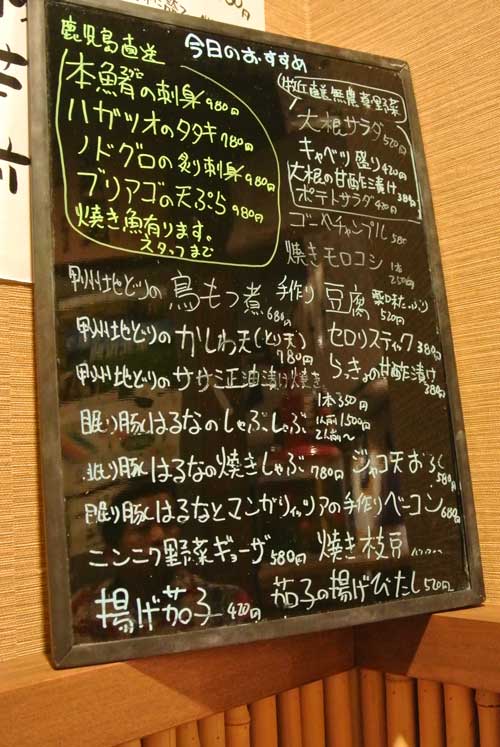 今日のおすすめ
鹿児島直送
本鯵の刺身 980円
ハガツオのタタキ 780円
ノドグロの炙り刺身 980円
ブリアゴの天ぷら 980円
焼き魚有ります。
スタッフまで
直送 無農薬野菜
大根サラダ 520円
キャベツ盛り 420円
大根の甘酢漬け 380円
ポテトサラダ 420円
ゴーヤチャンプル 580
焼きモロコシ 1本 250円
甲州地どりの 鳥もつ煮 680円
手作り豆腐 520円
甲州地どりの かしわ天(とり天) 780円
セロリスティック 380円
甲州地どりの ササミ正油漬け焼き 1本 350円
らっきょの甘酢漬け 380円
眠り豚 はるなのしゃぶしゃぶ 1人前 1,500円 2人前〜
眠り豚 はるなの焼きしゃぶ 780円
ジャコ天おろし 580円
眠り豚 はるなとマンガリッツァの手作りベーコン 680円
ニンニク野菜ギョーザ 580円
焼き枝豆
揚げ茄子 420円
茄子の揚げびたし 520円